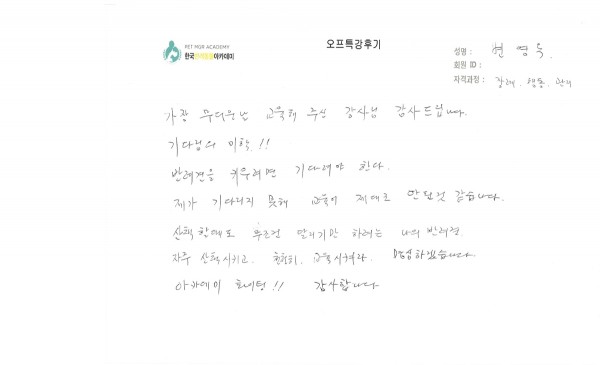 PET MGR ACADEMY
한국반려동물아카데미
오프특강후기
성명 : 현영욱
회원 ID :
자격과정 : 장례, 행동, 관리
가장 무더운날 교육해 주신 강사님 감사드립니다.
기다림의 미학!!
반려견을 키우려면 기다려야 한다.
제가 기다리지 못해 교육이 제대로 안된것 같습니다.
산책할때도 무조건 달리기만 하려는 나의 반려견
자주 산책시키고, 천천히, 교육시켜라 명심하겠습니다
아카데미 화이팅!! 감사합니다